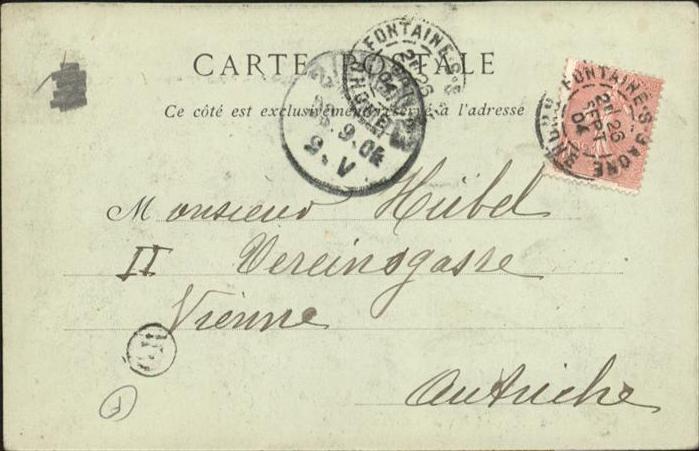 CARTE POSTALE
Ce côté est exclusivement réservé à l'adresse
FONTAINE-S-SAONE
RHONE
26
SEPT
04
FONTAINE-S-S
26
RHONE
9.04
9.V
Monsieur Hübel
II Vereinsgasse
Vienne
Autriche